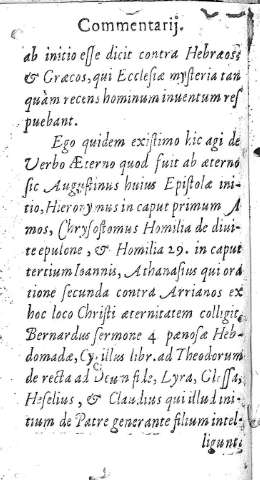 Commentarij.
ab initio eſſe dicit contra Hebræos,
& Græcos, qui Eccleſiæ myſteria tan
quàm recens hominum inuentum reſ
puebant.
Ego quidem exiſtimo hic agi de
Verbo Æterno quod fuit ab æterno
ſic Auguſtinus huius Epiſtolæ ini-
tio, Hieronymus in caput primum A
mos, Chryſoſtomus Homilia de diui-
te epulone, & Homilia 29. in caput
tertium Ioannis, Athanaſius qui ora
tione ſecunda contra Arrianos ex
hoc loco Chriſti æternitatem colligit,
Bernardus ſermone 4 pænoſæ Heb-
domadæ, Cyrillus libr. ad Theodorum
de recta ad Deum fide, Lyra, Gloſſa,
Heſelius, & Claudius qui illud ini-
tium de Patre generante filium intel-
ligunt: